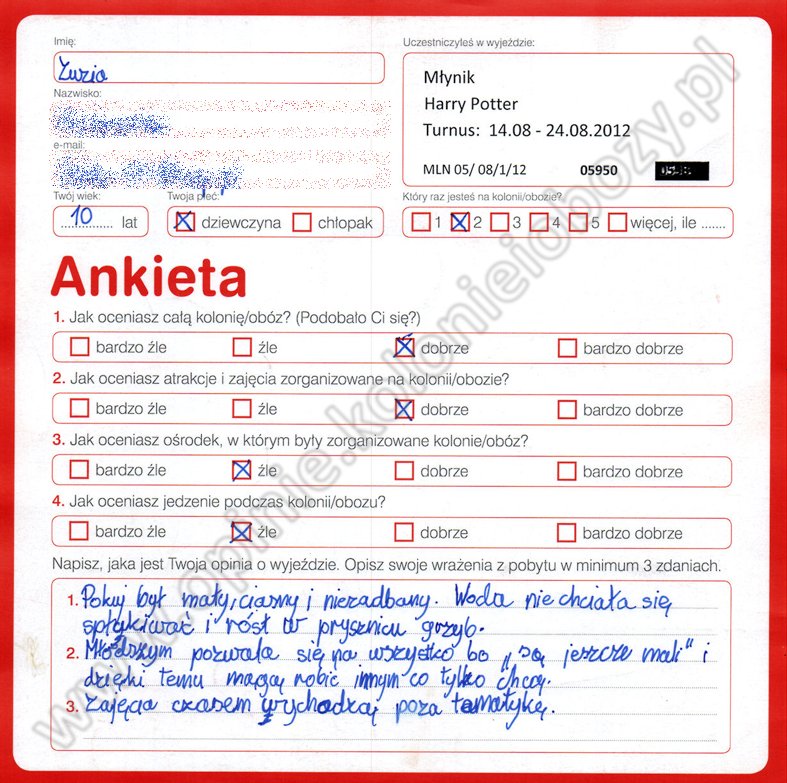 Imię:
Zuzia
Nazwisko:
e-mail:
Twój wiek:
10 lat
Twoja płeć:
dziewczyna chłopak
Uczestniczyłeś w wyjeździe:
Młynik
Harry Potter
Turnus: 14.08 - 24.08.2012
MLN 05/ 08/1/12 05950
Który raz jesteś na kolonii/obozie?
1 2 3 4 5 więcej, ile .......
Ankieta
1. Jak oceniasz całą kolonię/obóz? (Podobało Ci się?)
bardzo źle źle dobrze bardzo dobrze
2. Jak oceniasz atrakcje i zajęcia zorganizowane na kolonii/obozie?
bardzo źle źle dobrze bardzo dobrze
3. Jak oceniasz ośrodek, w którym były zorganizowane kolonie/obóz?
bardzo źle źle dobrze bardzo dobrze
4. Jak oceniasz jedzenie podczas kolonii/obozu?
bardzo źle źle dobrze bardzo dobrze
Napisz, jaka jest Twoja opinia o wyjeździe. Opisz swoje wrażenia z pobytu w minimum 3 zdaniach.
1. Pokuj był mały, ciasny i niezadbany. Woda nie chciała się
spłukiwać i rósł w prysznicu grzyb.
2. Młodszym pozwala się na wszystko bo „są jeszcze mali" i
dzięki temu mogą robić innym co tylko chcą.
3. Zajęcia czasem wychodzą poza tematykę.
www.opinie.kolonieiobozy.pl